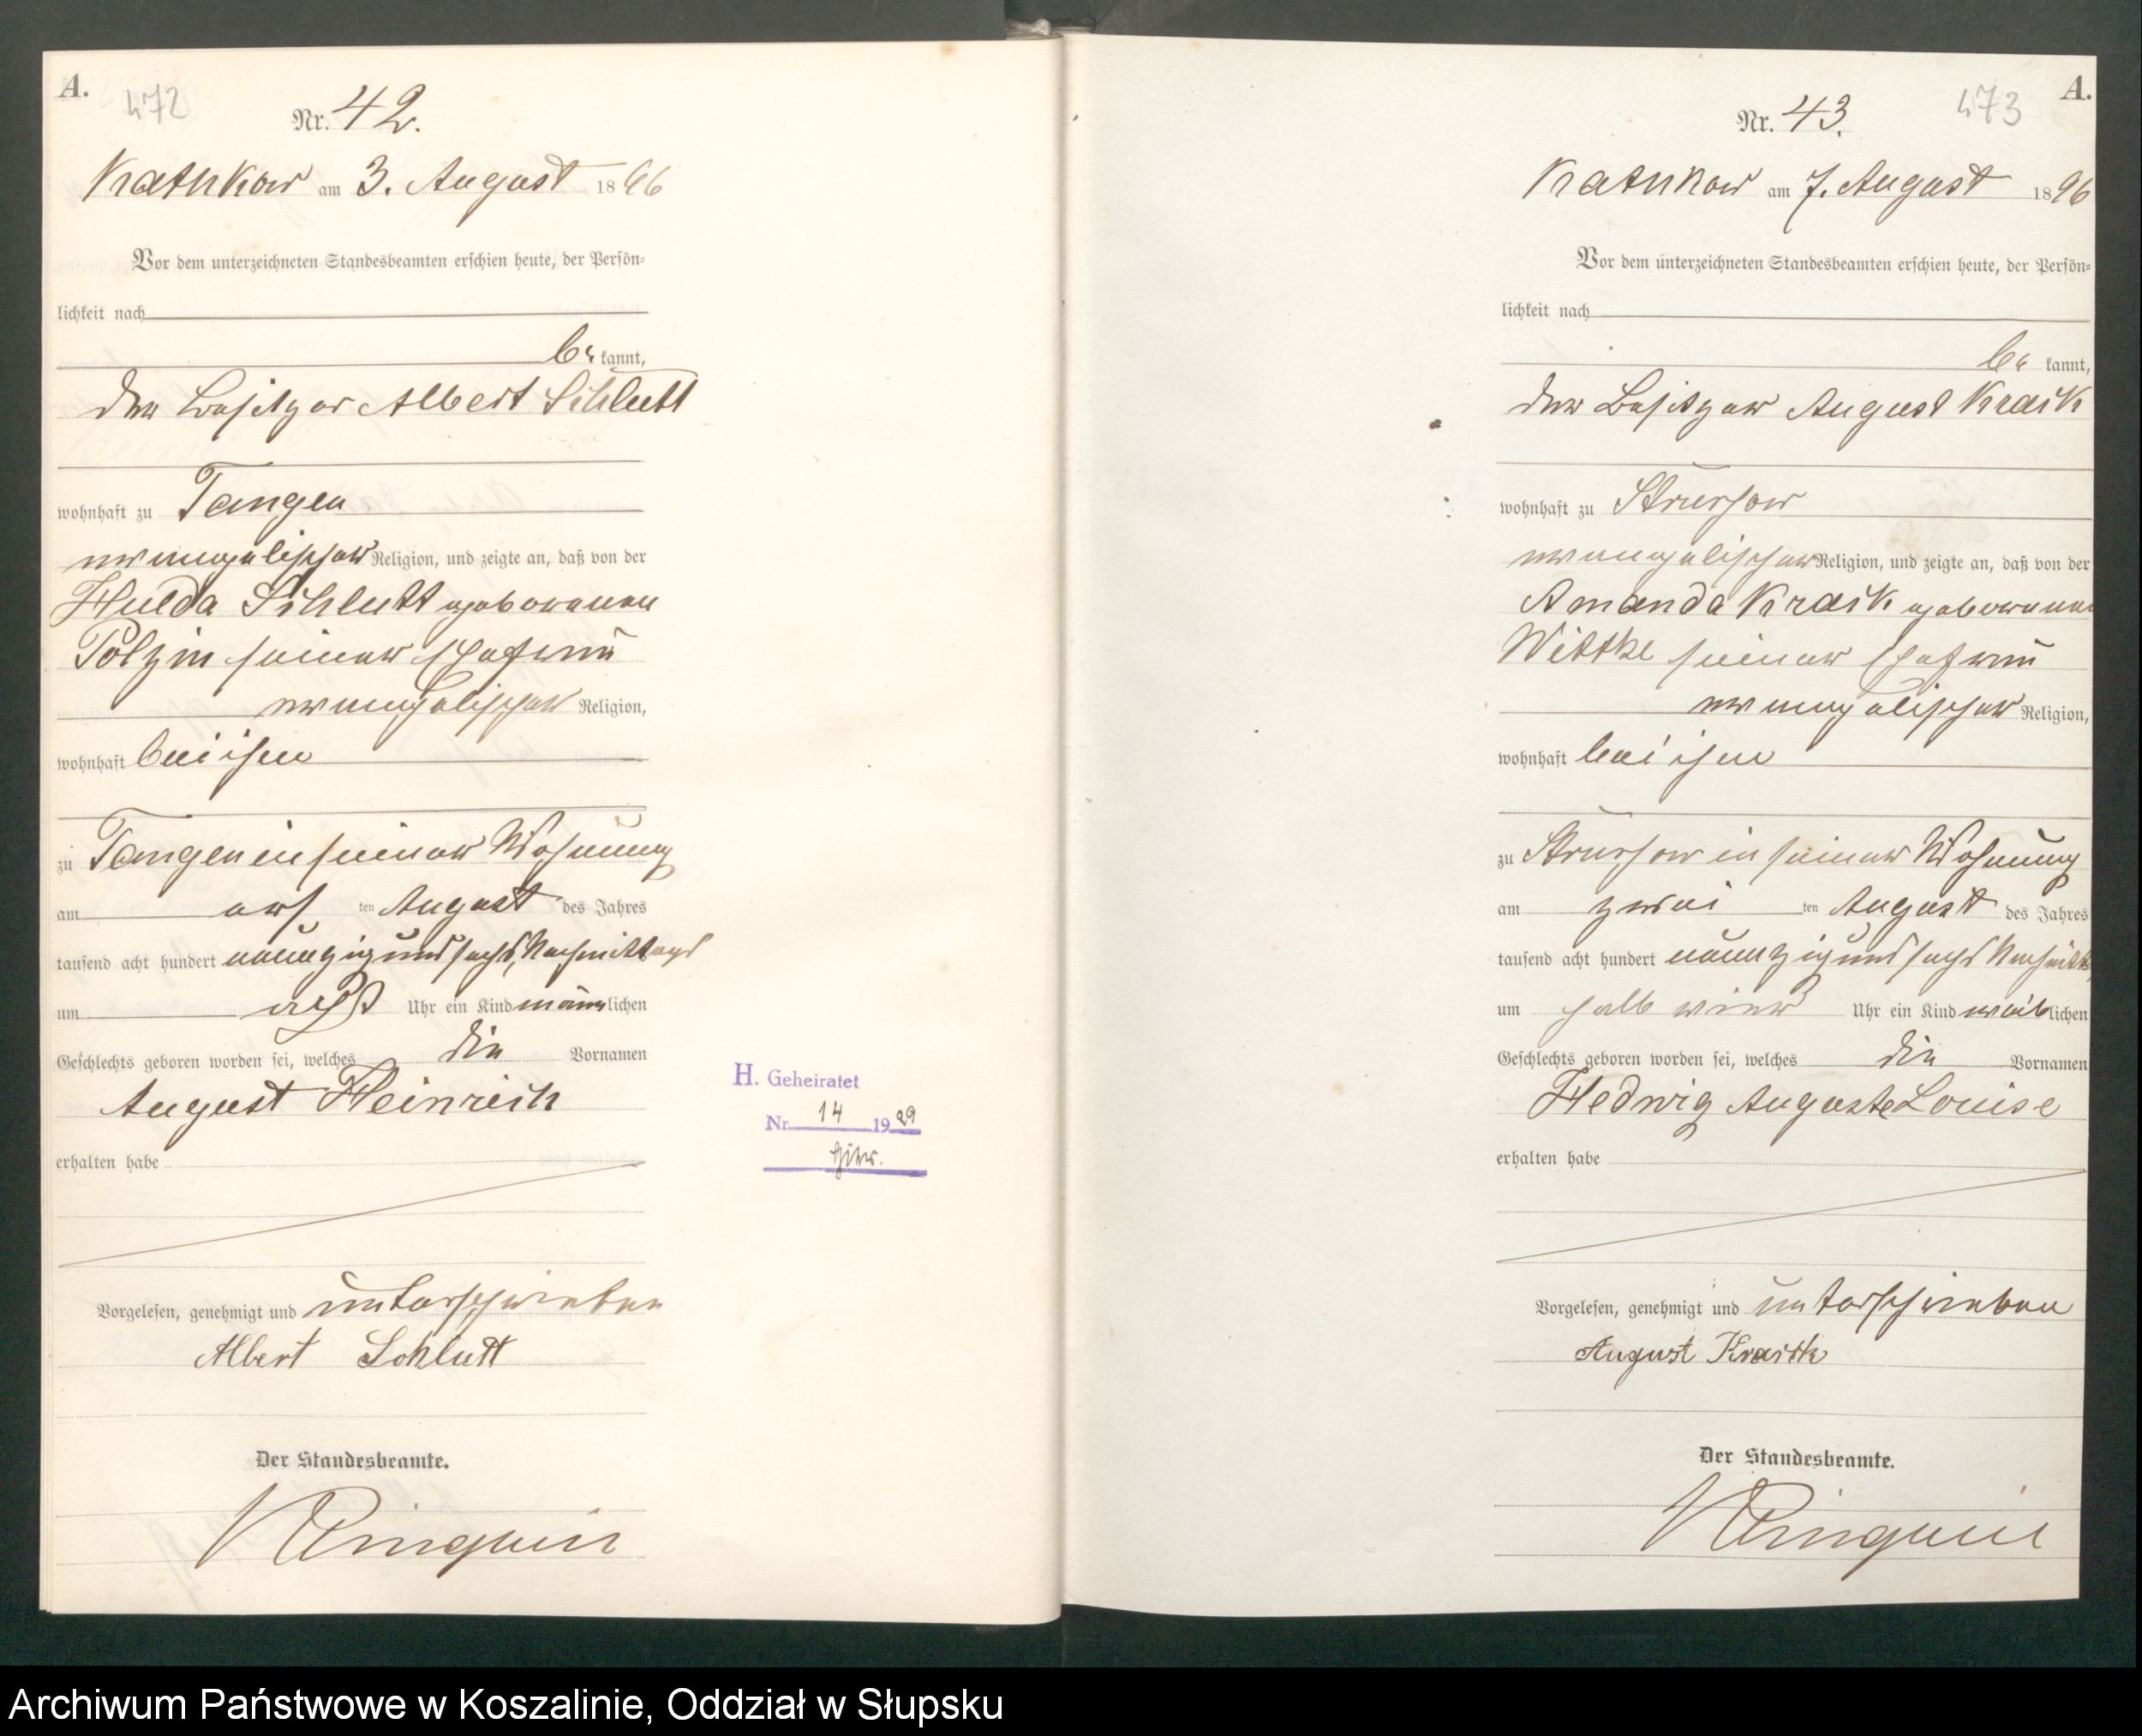 A.
472
Nr. 42.
Kathkow am 3. August 1896
Vor dem unterzeichneten Standesbeamten erschien heute, der Persön-
lichkeit nach
be kannt,
der Besitzer Albert Schlutt
wohnhaft zu Tangen
evangelischer Religion, und zeigte an, daß von der
Hulda Schlutt geborenen
Polzin seiner Ehefrau
evangelischer Religion,
wohnhaft bei ihm
zu Tangen in seiner Wohnung
am ers ten August des Jahres
tausend acht hundert neunzig und sechs Nachmittags
um acht Uhr ein Kind männlichen
Geschlechts geboren worden sei, welches die Vornamen
August Heinrich
erhalten habe
Vorgelesen, genehmigt und unterschrieben
Albert Schlutt
Der Standesbeamte.
H. Geheiratet
Nr. 14 1929
A.
473
Nr. 43.
Kathkow am 7. August 1896
Vor dem unterzeichneten Standesbeamten erschien heute, der Persön-
lichkeit nach
be kannt,
der Besitzer August Kraik
wohnhaft zu Strussow
evangelischer Religion, und zeigte an, daß von der
Amanda Kraik geborenen
Wittke seiner Ehefrau
evangelischer Religion,
wohnhaft bei ihm
zu Strussow in seiner Wohnung
am zwei ten August des Jahres
tausend acht hundert neunzig und sechs Nachmitt
um halb vier Uhr ein Kind weiblichen
Geschlechts geboren worden sei, welches die Vornamen
Hedwig Auguste Louise
erhalten habe
Vorgelesen, genehmigt und unterschrieben
August
Der Standesbeamte.
Archiwum Państwowe w Koszalinie, Oddział w Słupsku